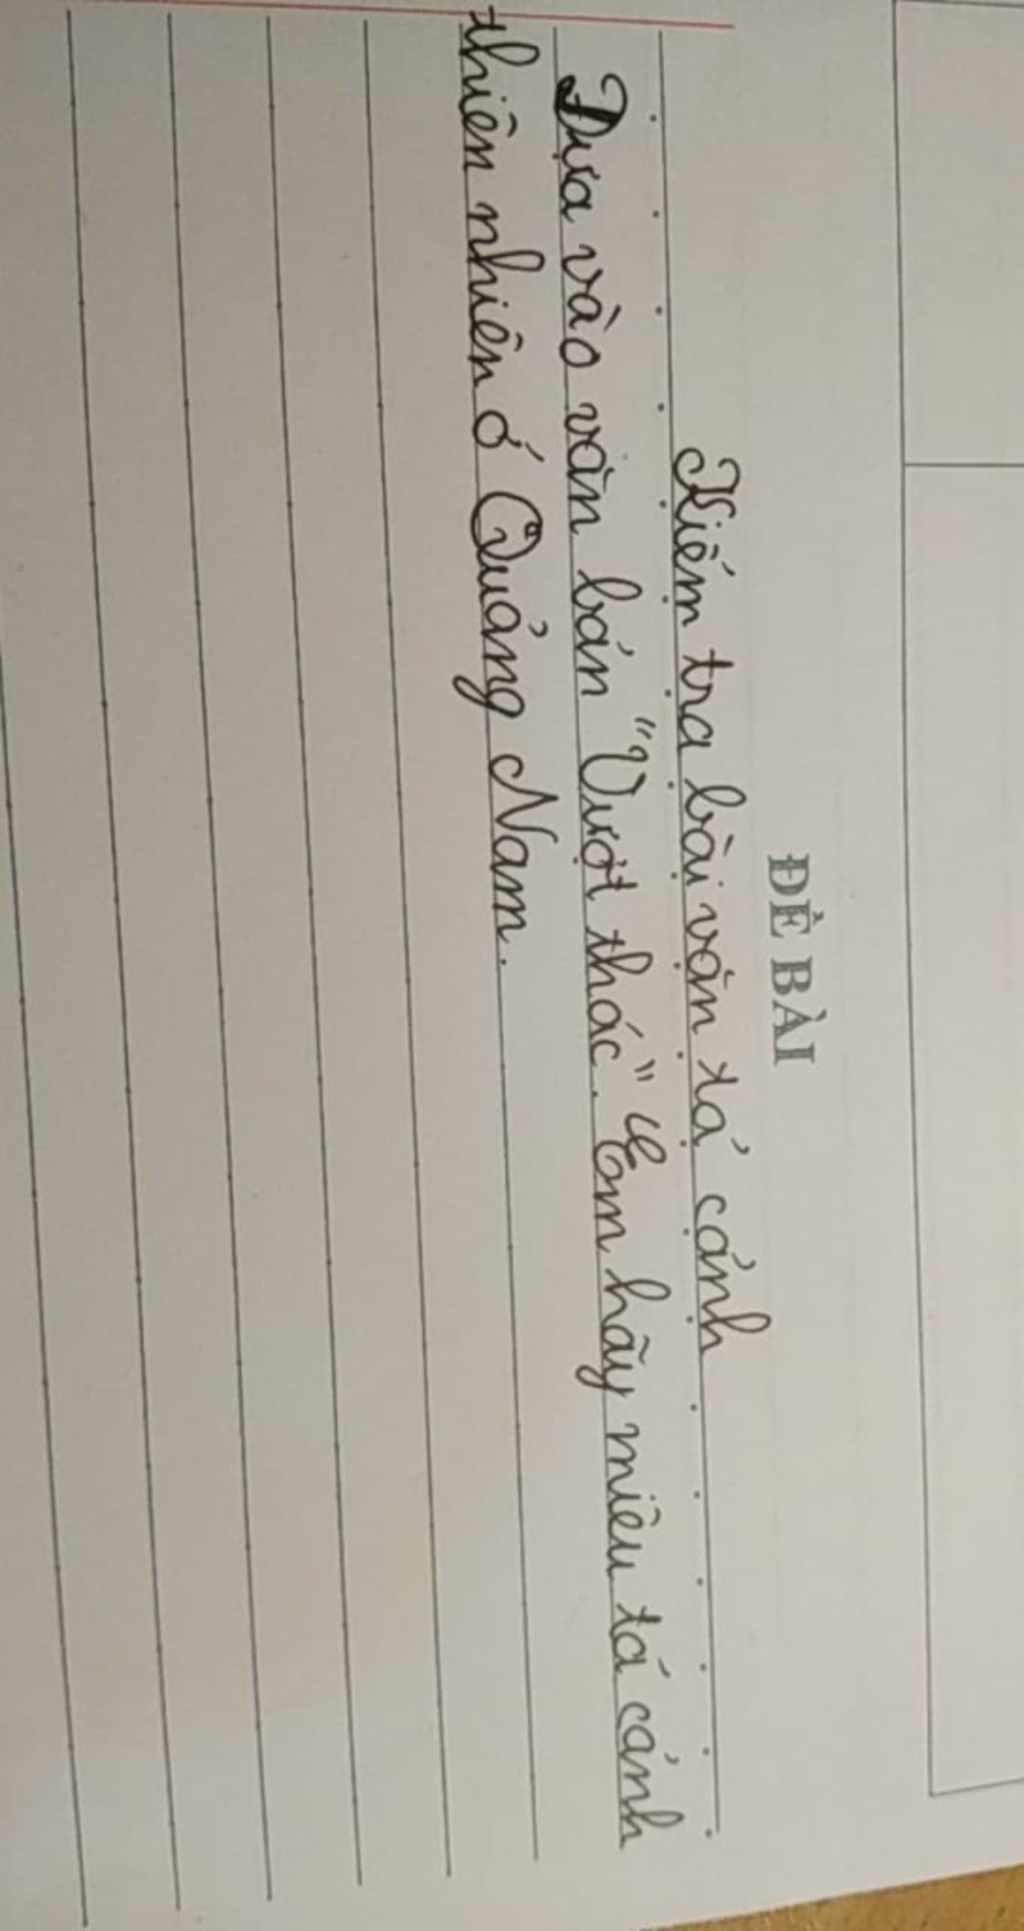 ĐỀ BÀI
Kiểm tra bài văn tả cảnh
Dựa vào văn bản "Vượt thác". Em hãy miêu tả cảnh
thiên nhiên ở Quảng Nam.